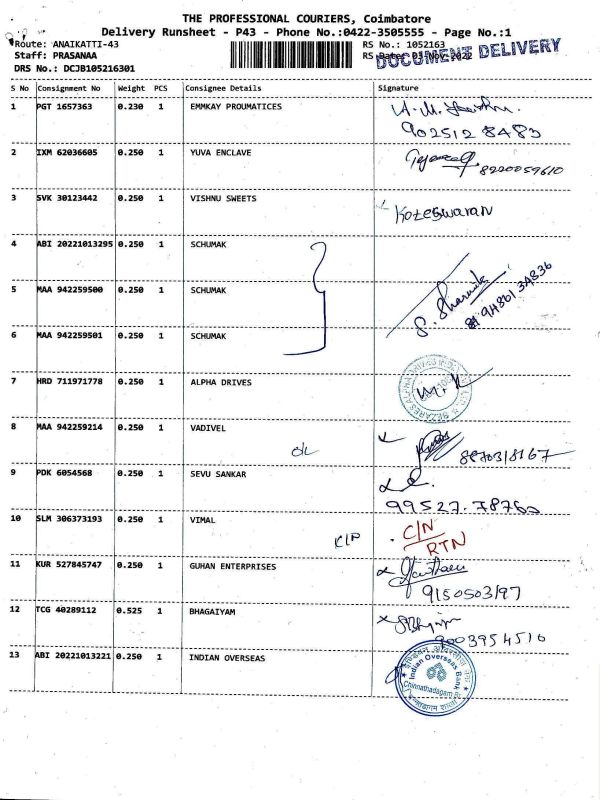 THE PROFESSIONAL COURIERS, Coimbatore
Delivery Runsheet - P43 - Phone No.:0422-3505555 - Page No.:1
Route: ANAIKATTI-43 RS No.: 1052163
Staff: PRASANAA RS Date: 03-Nov-2022 DOCUMENT DELIVERY
DRS No.: DCJB105216301
S No Consignment No Weight PCS Consignee Details Signature
1 PGT 1657363 0.230 1 EMMKAY PROUMATICES
9025128483
2 IXM 62036605 0.250 1 YUVA ENCLAVE 8220059610
3 SVK 30123442 0.250 1 VISHNU SWEETS Koteswaran
4 ABI 20221013295 0.250 1 SCHUMAK
5 MAA 942259500 0.250 1 SCHUMAK S. Sharmila 9486134836
6 MAA 942259501 0.250 1 SCHUMAK
7 HRD 711971778 0.250 1 ALPHA DRIVES
8 MAA 942259214 0.250 1 VADIVEL 8870318167
9 PDK 6054568 0.250 1 SEVU SANKAR
99527.78760
10 SLM 306373193 0.250 1 VIMAL C/N
RTN
11 KUR 527845747 0.250 1 GUHAN ENTERPRISES
9150503197
12 TCG 40289112 0.525 1 BHAGAIYAM
9003954510
13 ABI 20221013221 0.250 1 INDIAN OVERSEAS Indian Overseas Bank
Chinnathadagam Br.